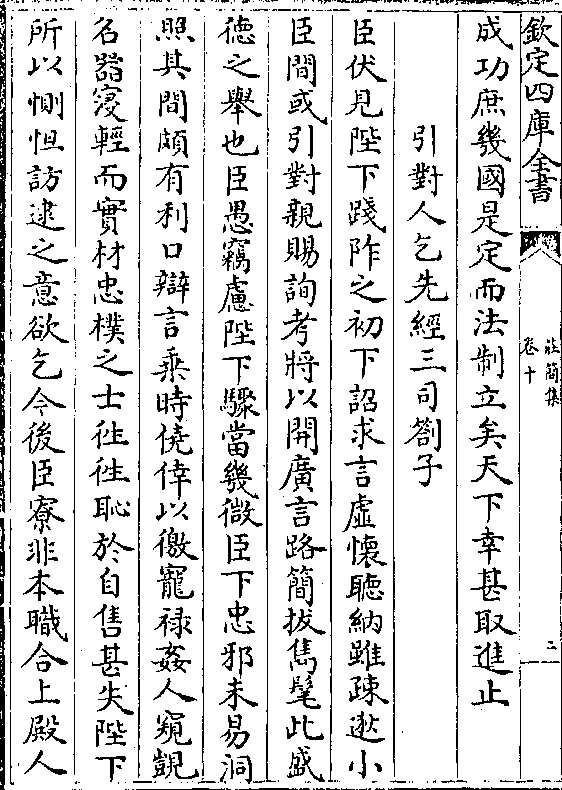 欽定四庫全書
莊簡集
卷十
二
成功庶幾國是定而法制立矣天下幸甚取進止
引對人乞先經三司劄子
臣伏見陛下踐阼之初下詔求言虛懷聽納雖疎逖小
臣間或引對親賜詢考將以開廣言路簡拔雋髦此盛
德之舉也臣愚竊慮陛下驟當幾微臣下忠邪未易洞
照其間頗有利口辯言乘時僥倖以徼寵禄姦人窺覬
名器寖輕而實材忠樸之士徃徃恥於自售甚失陛下
所以惻怛訪逮之意欲乞今後臣寮非本職合上殿人